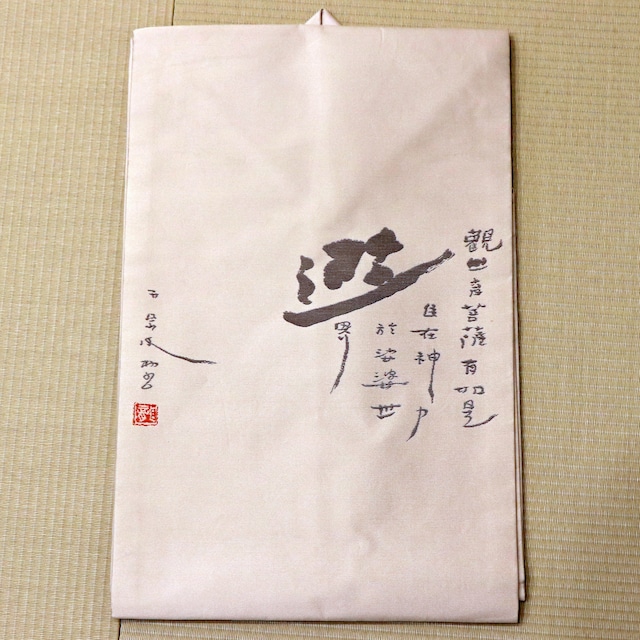 觀世音菩薩有如是
自在神力
遊
於娑婆世
界